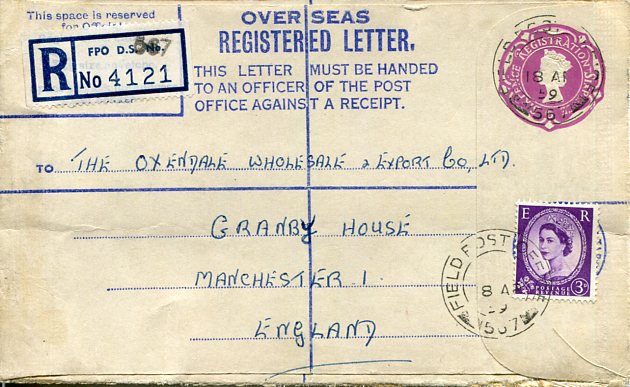 This space is reserved
OVER SEAS
REGISTERED LETTER.
R
FPO D.S. No. 567
No 4121
THIS LETTER MUST BE HANDED
TO AN OFFICER OF THE POST
OFFICE AGAINST A RECEIPT.
REGISTRATION
18 AP
59
567
TO THE OXENDALE WHOLESALE & EXPORT CO, LTD.
GRANBY HOUSE
MANCHESTER 1.
ENGLAND
E R
POSTAGE
REVENUE
3D
FIELD POST
8 AP
59
567